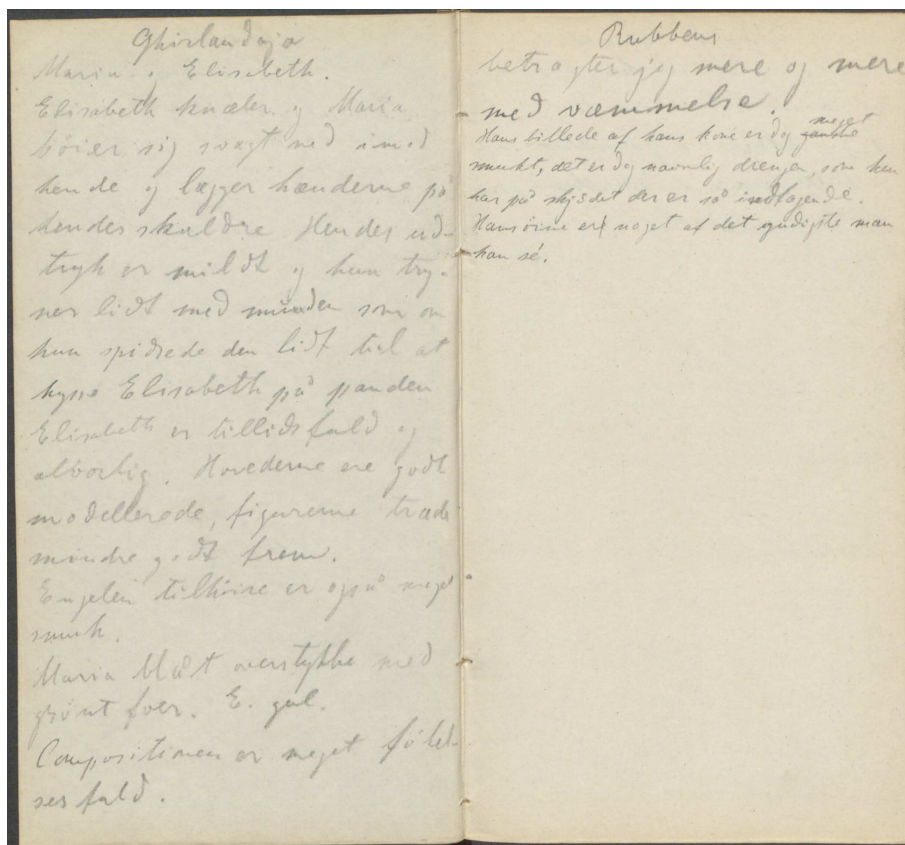 Ghirlandajo
Maria og Elisabeth.
Elisabeth knæler og Maria
böier sig svagt ned imod
hende og lægger hænderne på
hendes skuldre. Hendes ud-
tryk er mildt og hun try-
ner lidt med munden som om
hun spidsede den lidt til at
kysse Elisabeth på panden
Elisabeth er tillidsfuld og
alvorlig. Hovederne ere godt
modellerede, figurerne træde
mindre godt frem.
Engelen tilhöire er også meget
smuk.
Maria blåt overstykke med
grönt foer. E. gul.
Compositionen er meget fölel-
sesfuld.
Rubbens
betragter jeg mere og mere
med væmmelse.
meget
Hans billede af hans kone er dog ganske
smukt, det er dog navnlig drengen, som hun
har på skjödet der er så indtagende.
Hans öine er noget af det yndigste man
kan sé.